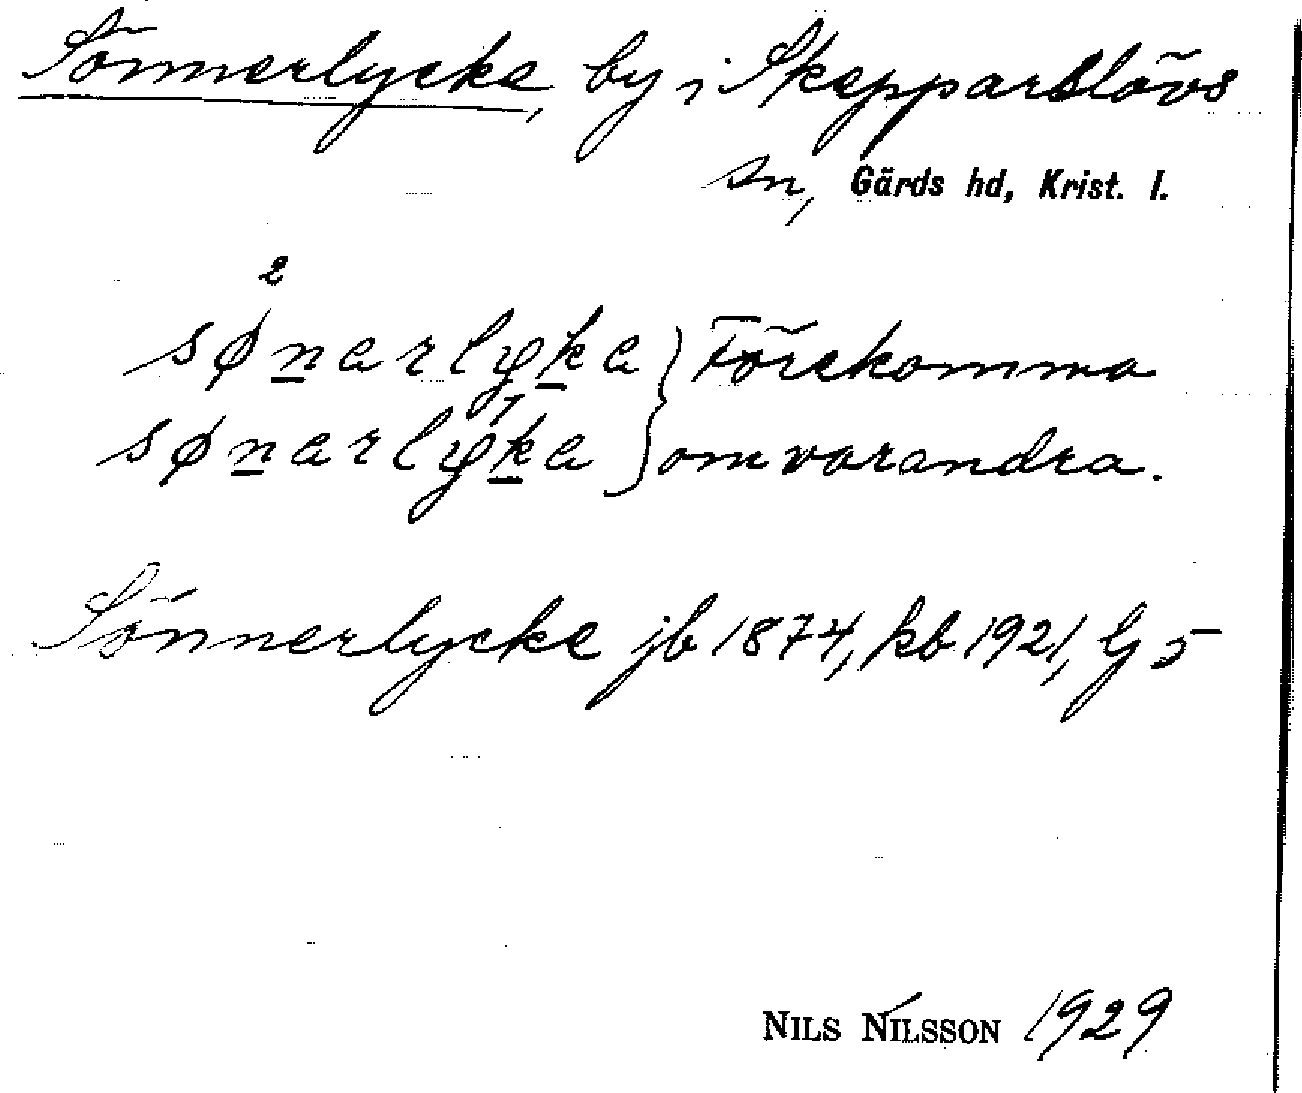 Sönnerlycke, by i Skepparslövs
sn, Gärds hd, Krist. l.
2
søn̲arlyk̲a } Förekomma
1
søn̲arlyk̲a } om varandra.
Sönnerlycke jb 1874, kb 1921, Gj 5
NILS NILSSON 1929